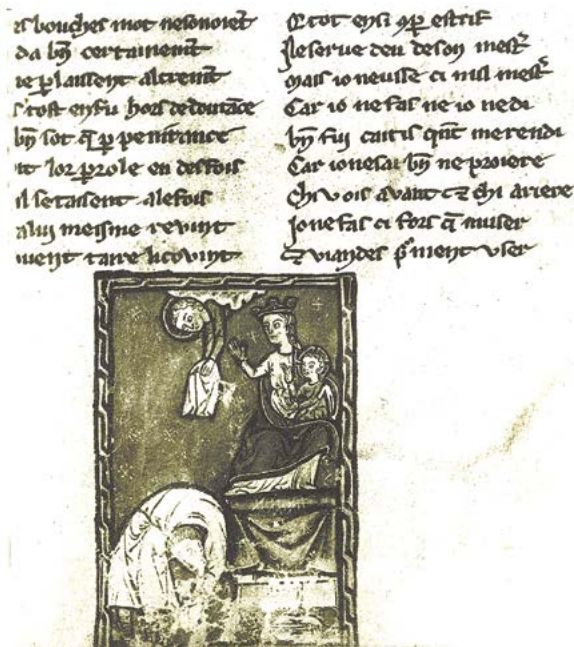 bouches mot nesonoiẽt
da bñ certainemẽt
plaissent altremẽt
tost enfu hors dedoutãce
bñ sot q̃ p̱ penitance
lor p̱role en desfois
il setaisent alefois
a lui meisme revint
taire licovint
E tot ensi ꝯ p̱ estrif
Le serve deu deson mest᷑
Mais io neusse ci nisl mest᷑
Car io ne fas ne io ne di
bñ fui caitis qñt me rendi
Car ionesai bñ ne proiere
Chi vois avant ⁊ chi ariere
Jone fas ci fors q̃ muser
⁊ viandes p᷑ nient vser